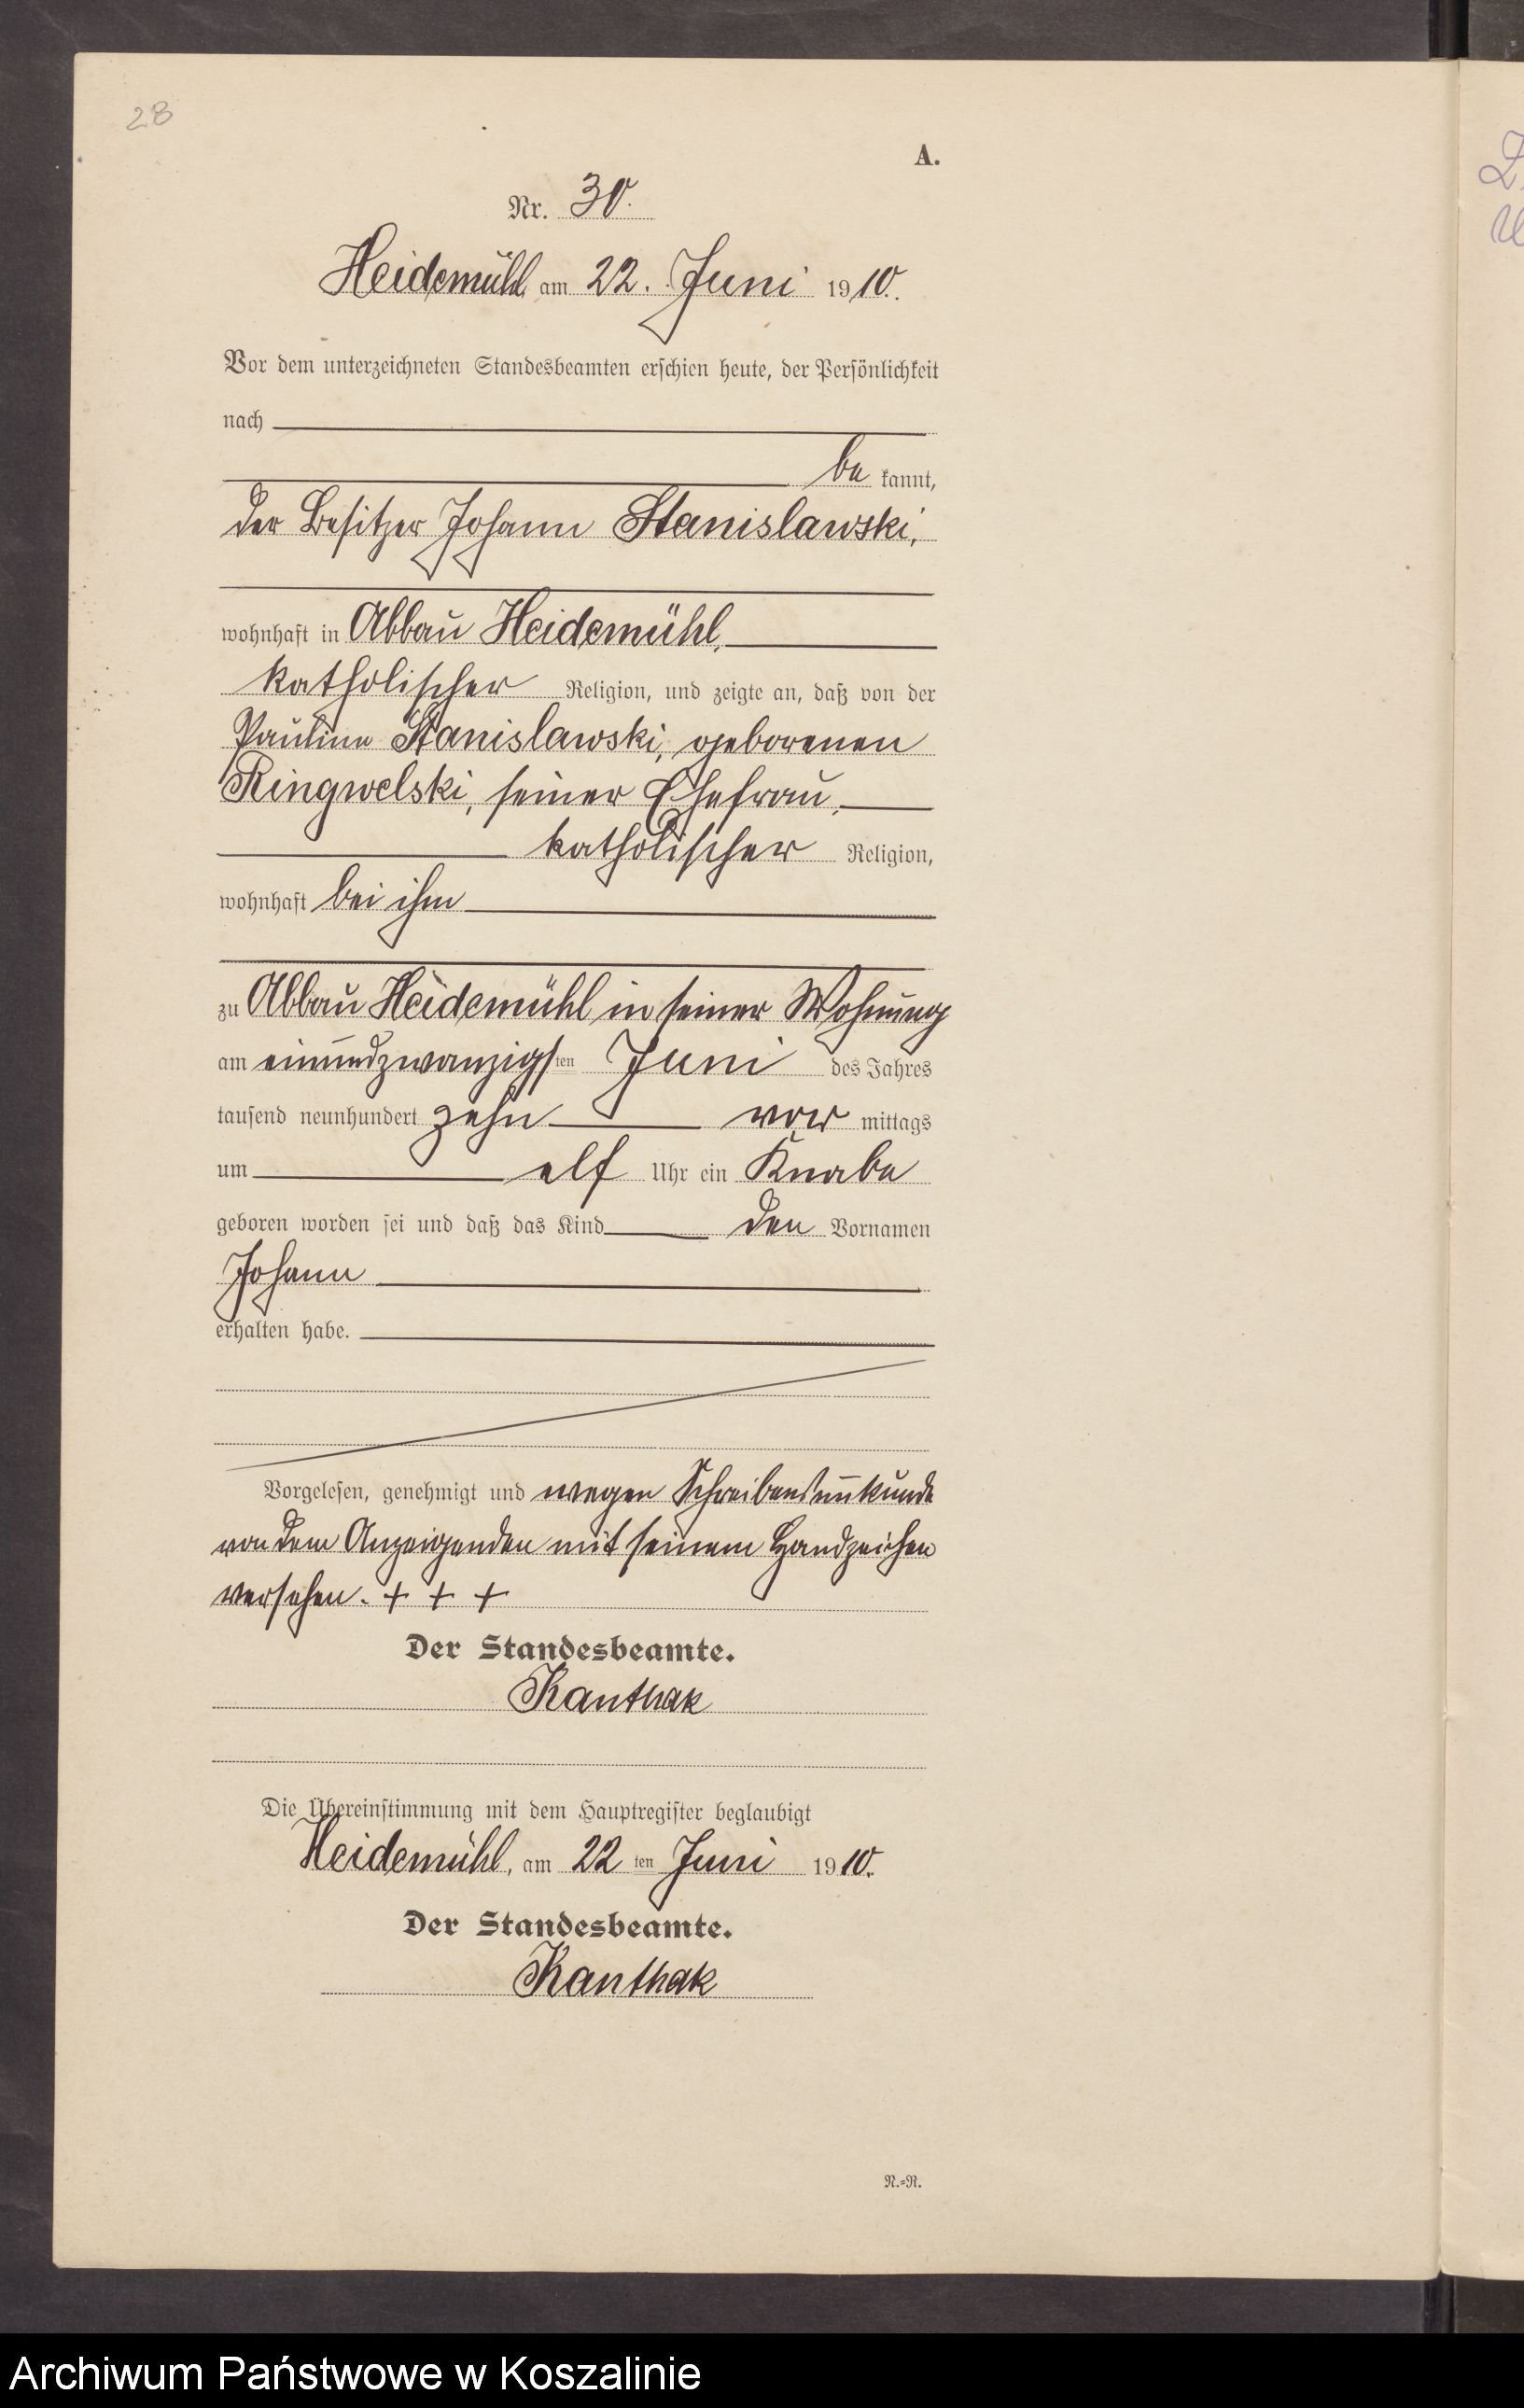 28
A.
Nr. 30.
Heidemühl, am 22. Juni 1910.
Vor dem unterzeichneten Standesbeamten erschien heute, der Persönlichkeit
nach
be kannt,
der Besitzer Johann Stanislawski,
wohnhaft in Abbau Heidemühl,
katholischer Religion, und zeigte an, daß von der
Pauline Stanislawski, geborenen
Ringwelski, seiner Ehefrau,
katholischer Religion,
wohnhaft bei ihm
zu Abbau Heidemühl in seiner Wohnung
am einundzwanzigsten Juni des Jahres
tausend neunhundert zehn vor mittags
um elf Uhr ein Knabe
geboren worden sei und daß das Kind den Vornamen
Johann
erhalten habe.
Vorgelesen, genehmigt und wegen Schreibensunkunde
von dem Anzeigenden mit seinem Handzeichen
versehen. + + +
Der Standesbeamte.
Kanthak
Die Übereinstimmung mit dem Hauptregister beglaubigt
Heidemühl, am 22 ten Juni 1910.
Der Standesbeamte.
Kanthak
N.=N.
Archiwum Państwowe w Koszalinie